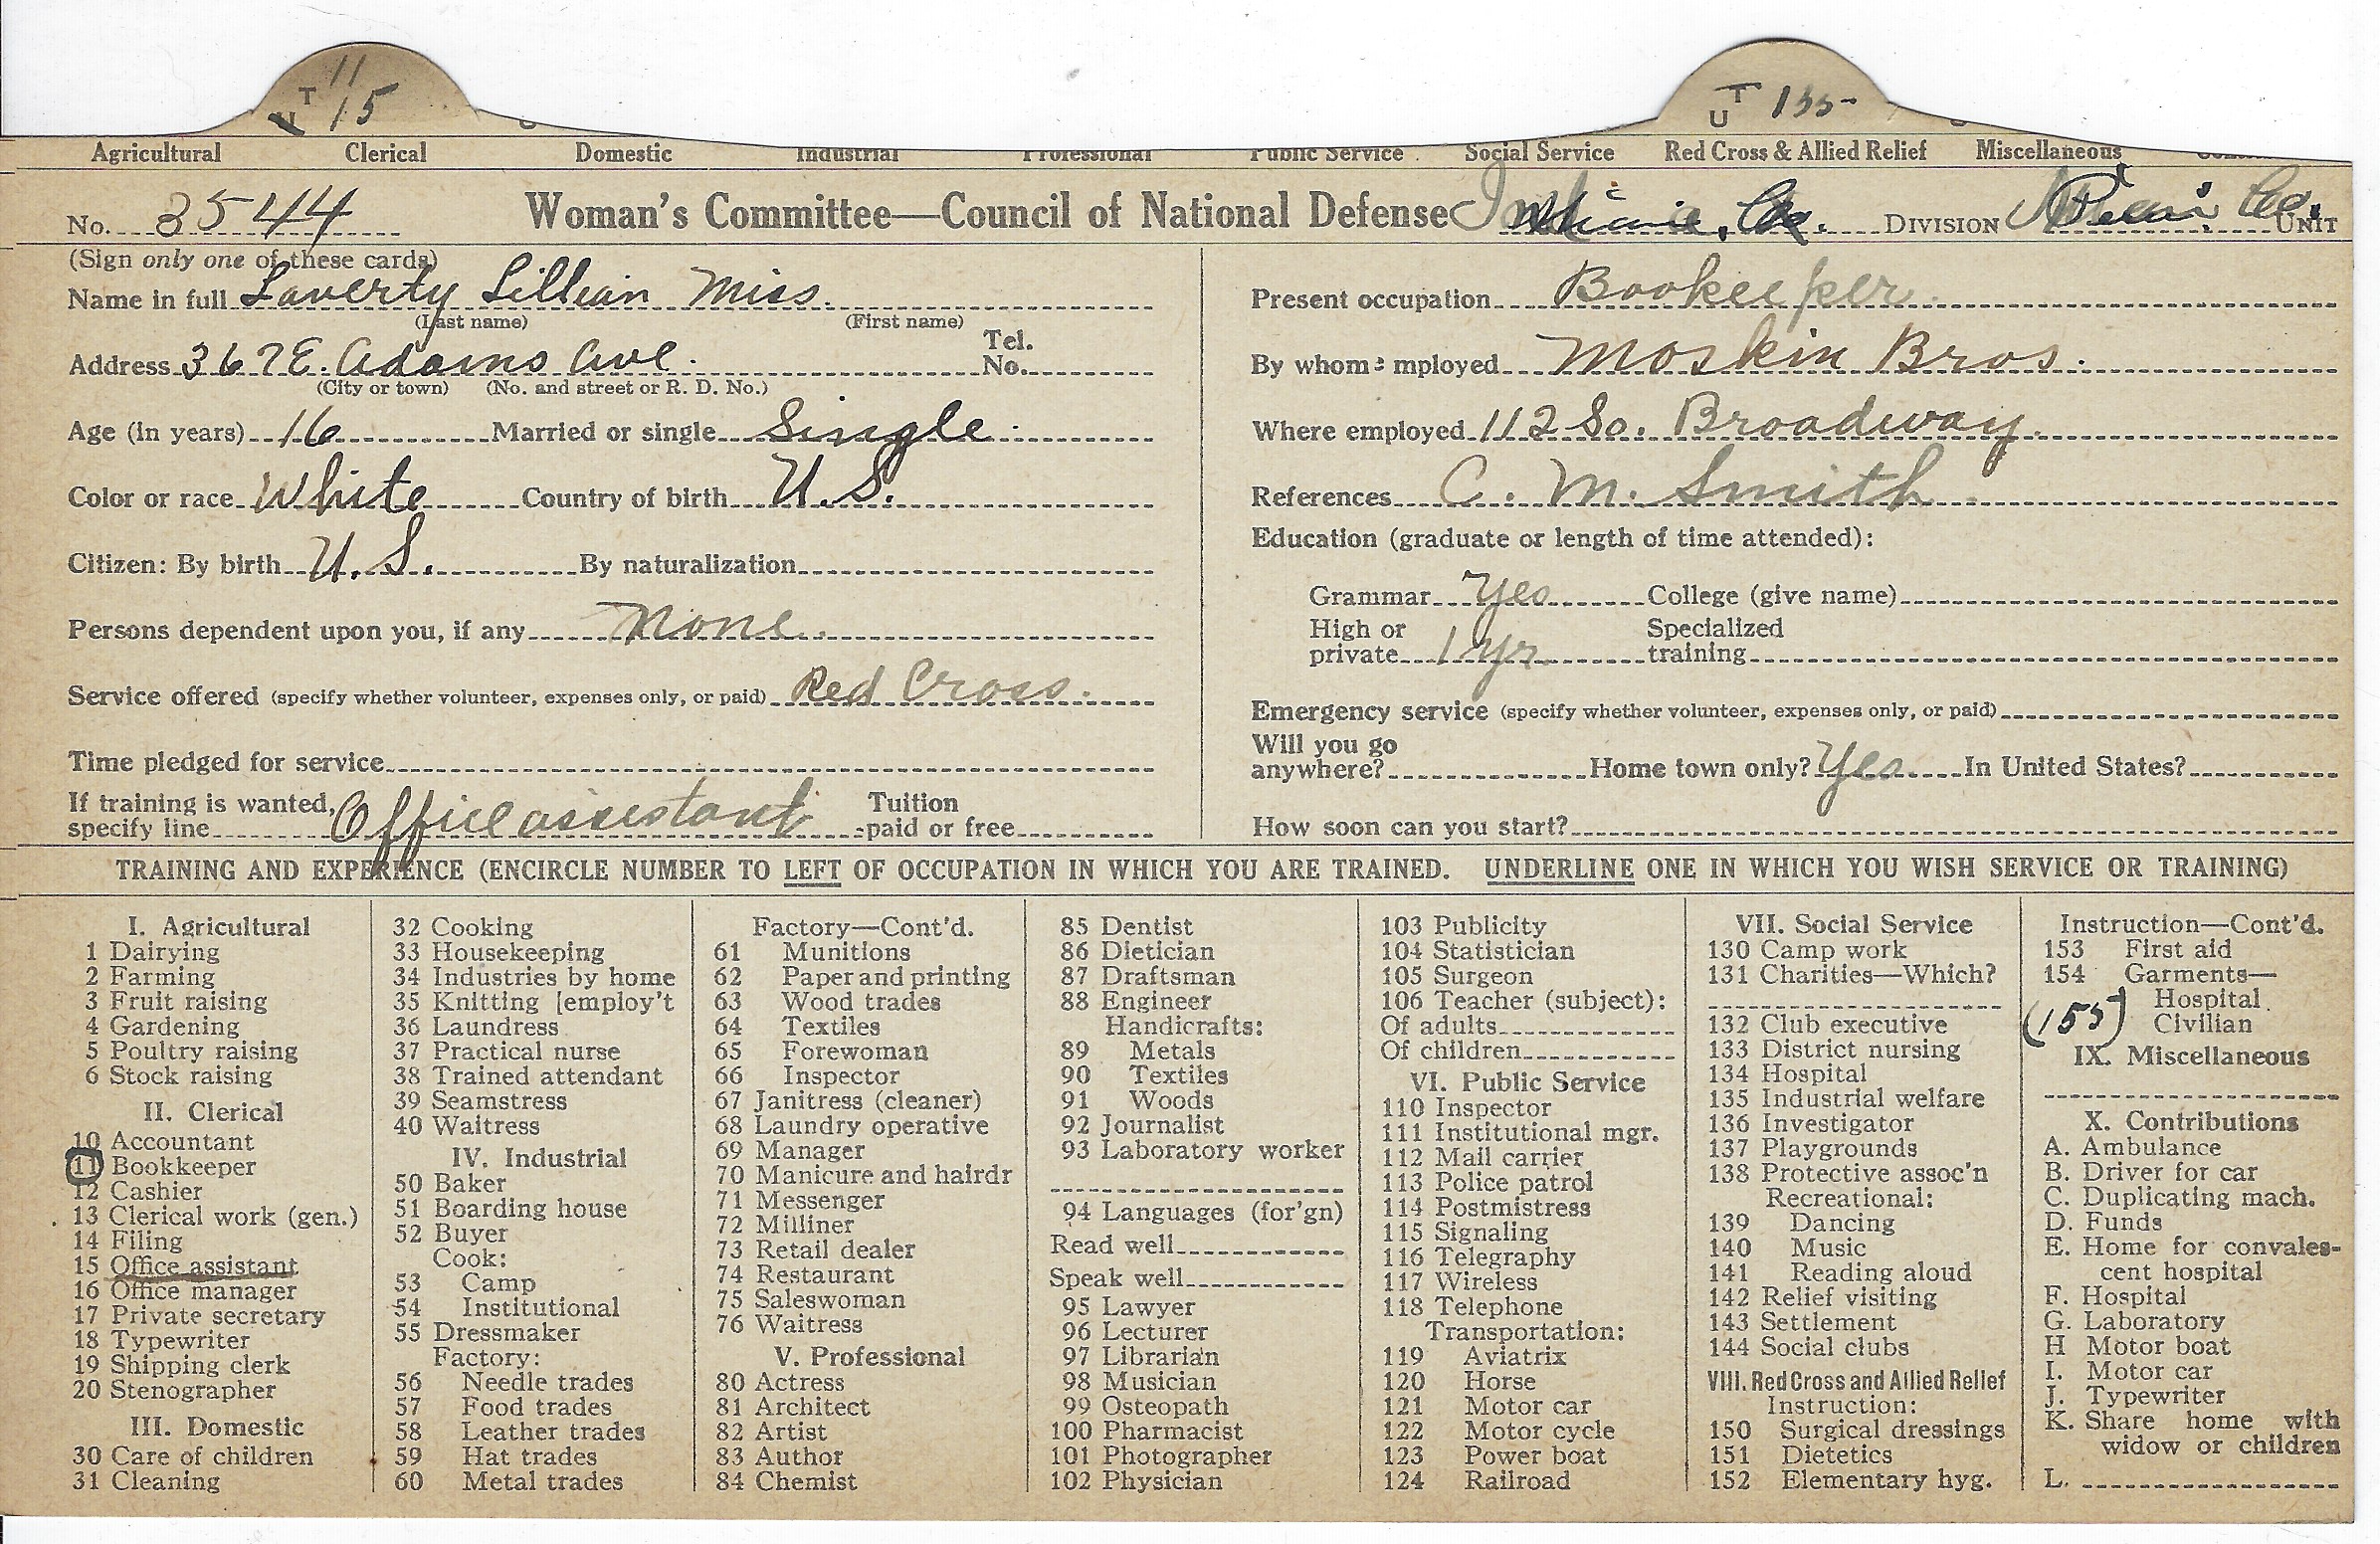 11
T 15
T
U 135-
Agricultural Clerical Domestic Industrial Professional Public Service Social Service Red Cross & Allied Relief Miscellaneous
No. 3544 Woman's Committee—Council of National Defense DIVISION Co. UNIT
(Sign only one of these cards)
Name in full Laverty Lillian Miss.
(Last name) (First name)
Address 367 E. Adams Ave. Tel. No.
(City or town) (No. and street or R. D. No.)
Age (in years) 16 Married or single Single.
Color or race White Country of birth U.S.
Citizen: By birth U.S. By naturalization
Persons dependent upon you, if any None.
Service offered (specify whether volunteer, expenses only, or paid) Red Cross.
Time pledged for service
If training is wanted, specify line Office assistant Tuition paid or free
Present occupation Bookeeper
By whom employed Moskin Bros.
Where employed 112 So. Broadway.
References C. M. Smith
Education (graduate or length of time attended):
Grammar Yes College (give name)
High or private 1 yr. Specialized training
Emergency service (specify whether volunteer, expenses only, or paid)
Will you go anywhere? Home town only? Yes In United States?
How soon can you start?
TRAINING AND EXPERIENCE (ENCIRCLE NUMBER TO LEFT OF OCCUPATION IN WHICH YOU ARE TRAINED. UNDERLINE ONE IN WHICH YOU WISH SERVICE OR TRAINING)
I. Agricultural
1 Dairying
2 Farming
3 Fruit raising
4 Gardening
5 Poultry raising
6 Stock raising
II. Clerical
10 Accountant
11 Bookkeeper
12 Cashier
13 Clerical work (gen.)
14 Filing
15 Office assistant
16 Office manager
17 Private secretary
18 Typewriter
19 Shipping clerk
20 Stenographer
III. Domestic
30 Care of children
31 Cleaning
32 Cooking
33 Housekeeping
34 Industries by home
35 Knitting [employ't
36 Laundress
37 Practical nurse
38 Trained attendant
39 Seamstress
40 Waitress
IV. Industrial
50 Baker
51 Boarding house
52 Buyer
Cook:
53 Camp
54 Institutional
55 Dressmaker
Factory:
56 Needle trades
57 Food trades
58 Leather trades
59 Hat trades
60 Metal trades
Factory—Cont'd.
61 Munitions
62 Paper and printing
63 Wood trades
64 Textiles
65 Forewoman
66 Inspector
67 Janitress (cleaner)
68 Laundry operative
69 Manager
70 Manicure and hairdr
71 Messenger
72 Milliner
73 Retail dealer
74 Restaurant
75 Saleswoman
76 Waitress
V. Professional
80 Actress
81 Architect
82 Artist
83 Author
84 Chemist
85 Dentist
86 Dietician
87 Draftsman
88 Engineer
Handicrafts:
89 Metals
90 Textiles
91 Woods
92 Journalist
93 Laboratory worker
94 Languages (for'gn)
Read well
Speak well
95 Lawyer
96 Lecturer
97 Librarian
98 Musician
99 Osteopath
100 Pharmacist
101 Photographer
102 Physician
103 Publicity
104 Statistician
105 Surgeon
106 Teacher (subject):
Of adults
Of children
VI. Public Service
110 Inspector
111 Institutional mgr.
112 Mail carrier
113 Police patrol
114 Postmistress
115 Signaling
116 Telegraphy
117 Wireless
118 Telephone
Transportation:
119 Aviatrix
120 Horse
121 Motor car
122 Motor cycle
123 Power boat
124 Railroad
VII. Social Service
130 Camp work
131 Charities—Which?
132 Club executive
133 District nursing
134 Hospital
135 Industrial welfare
136 Investigator
137 Playgrounds
138 Protective assoc'n
Recreational:
139 Dancing
140 Music
141 Reading aloud
142 Relief visiting
143 Settlement
144 Social clubs
VIII. Red Cross and Allied Relief
Instruction:
150 Surgical dressings
151 Dietetics
152 Elementary hyg.
Instruction—Cont'd.
153 First aid
154 Garments—
Hospital
(155) Civilian
IX. Miscellaneous
X. Contributions
A. Ambulance
B. Driver for car
C. Duplicating mach.
D. Funds
E. Home for convales-
cent hospital
F. Hospital
G. Laboratory
H Motor boat
I. Motor car
J. Typewriter
K. Share home with
widow or children
L.